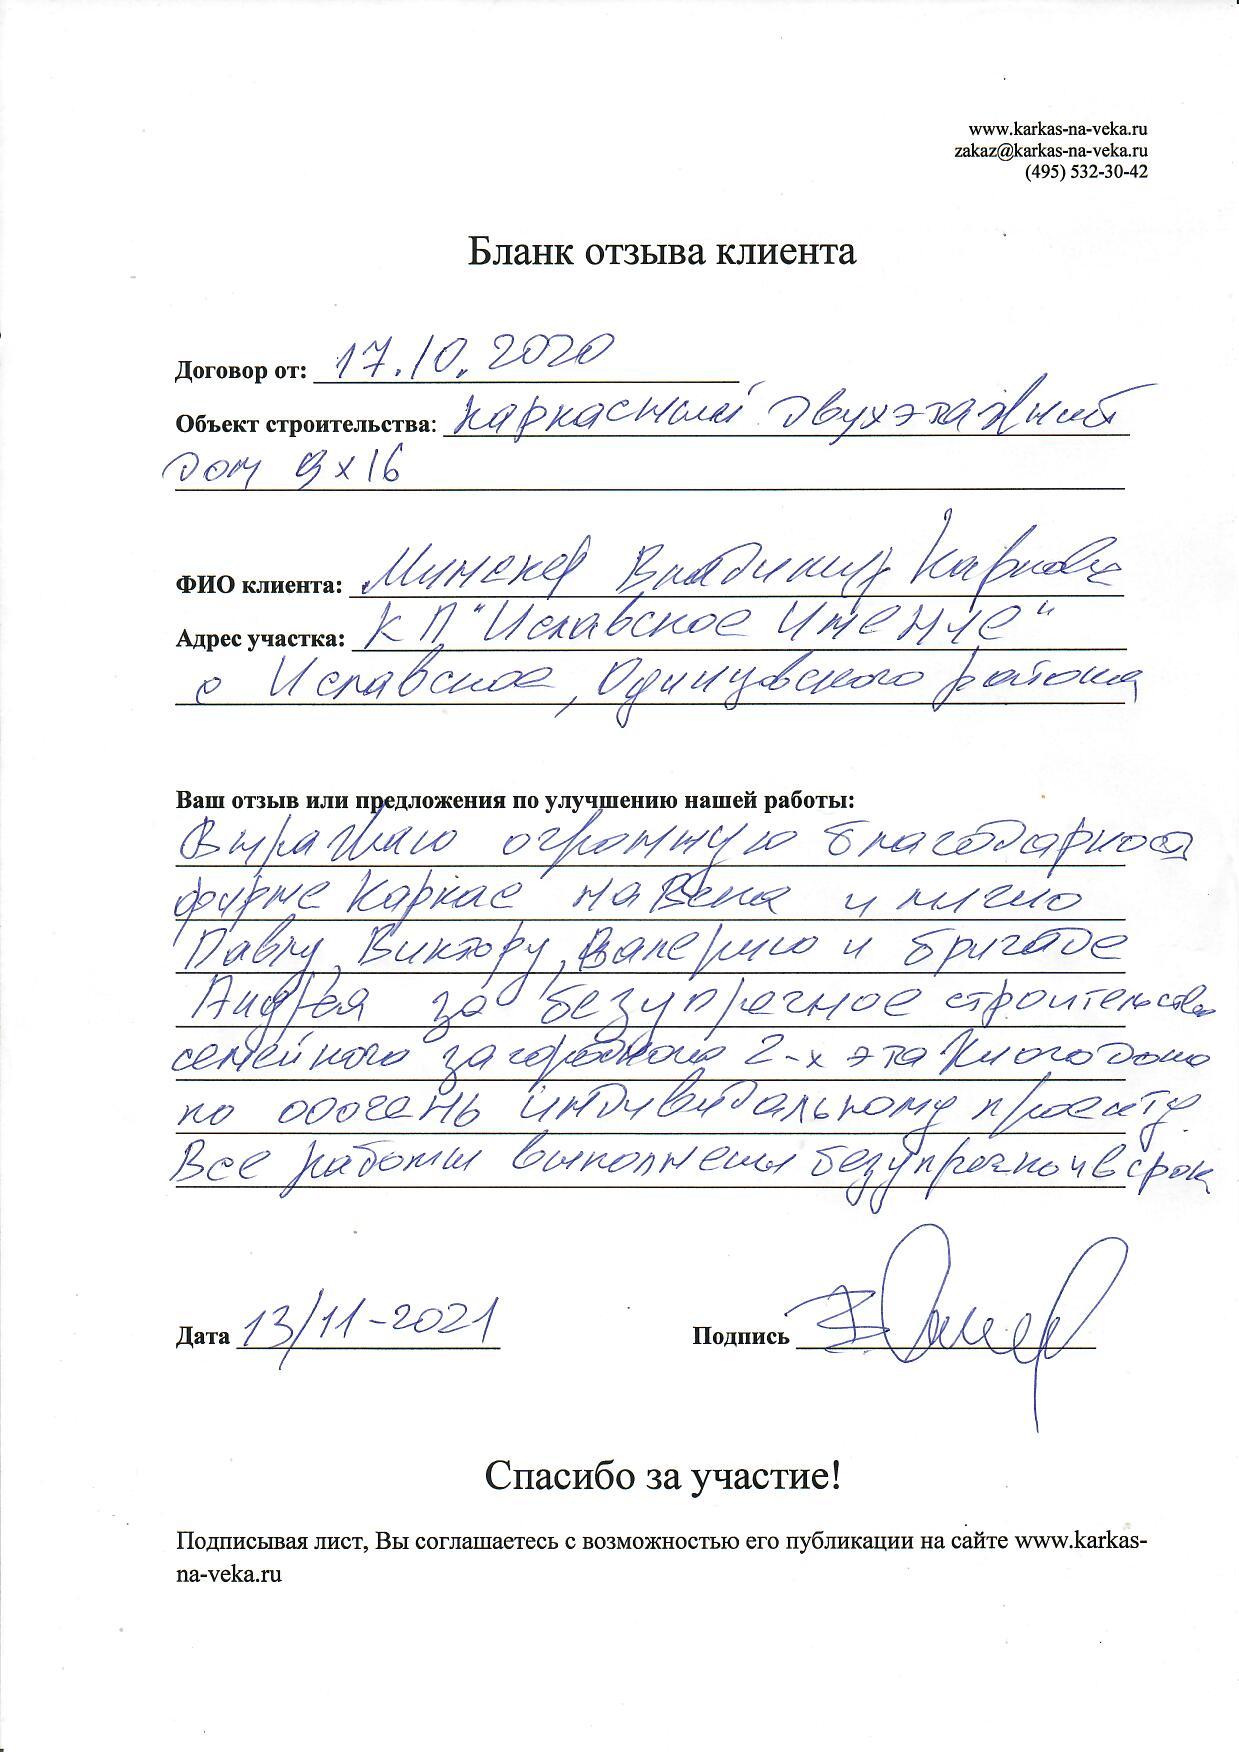 www.karkas-na-veka.ru
zakaz@karkas-na-veka.ru
(495) 532-30-42
Бланк отзыва клиента
Договор от: 17.10.2020
Объект строительства: каркасный двухэтажный
дом 9х16
ФИО клиента: Владимир
Адрес участка: КП "Иславское Имение"
с Иславское, Одинцовского района
Ваш отзыв или предложения по улучшению нашей работы:
Выражаю огромную благодарность
фирме Каркас на Века и лично
Павлу, Виктору, Валерию и бригаде
Андрея за безупречное строительство
семейного загородного 2-х этажного дома
по ооочень индивидальному проекту.
Все работы выполнены безупречно и в срок
Дата 13/11-2021
Подпись
Спасибо за участие!
Подписывая лист, Вы соглашаетесь с возможностью его публикации на сайте www.karkas-
na-veka.ru